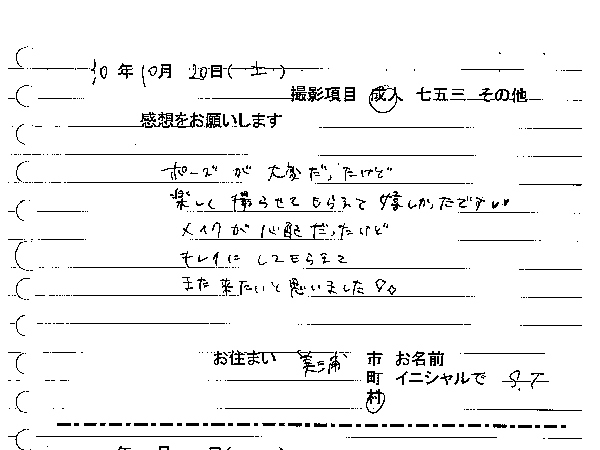 10年10月20日(土)
撮影項目 成人 七五三 その他
感想をお願いします
ポーズが大変だったけど
楽しく撮らせてもらえて嬉しかったです♥♥
メイクが心配だったけど
キレイにしてもらえて
また来たいと思いました!!
お住まい 美浦 市 お名前
町 イニシャルで S.T
村